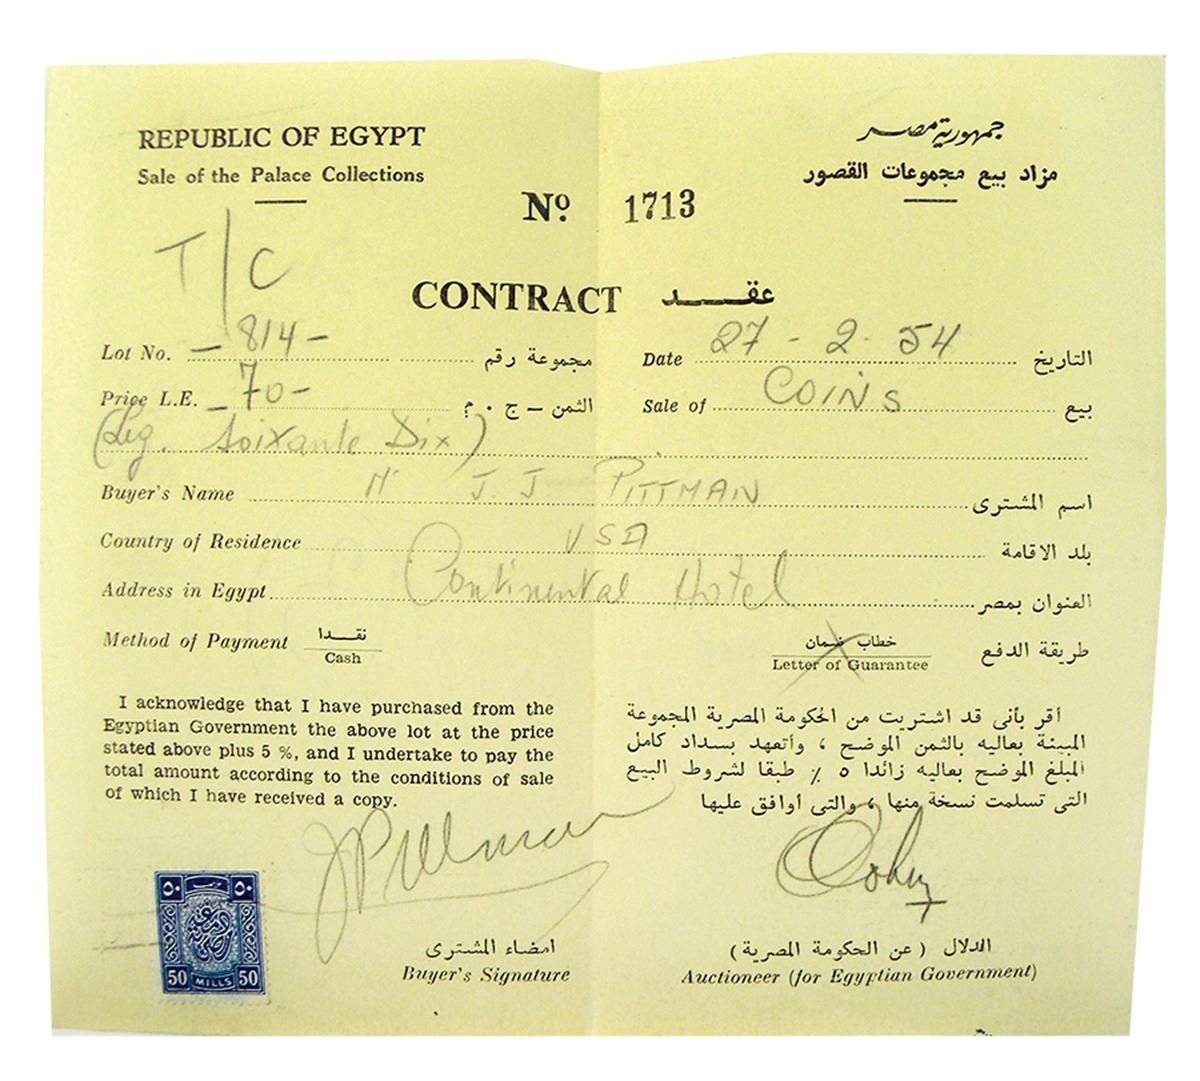 REPUBLIC OF EGYPT جمهورية مصر
Sale of the Palace Collections مزاد بيع مجموعات القصور
Nº 1713
T/C
CONTRACT عقـــد
Lot No. — 814 — مجموعة رقم Date 27 - 2 - 54 التاريخ
Price L.E. — 70 — الثمن – ج . م Sale of COINS بيع
soixante Dix)
Buyer's Name J. J PITTMAN اسم المشترى
Country of Residence USA بلد الاقامة
Address in Egypt Continental Hotel العنوان بمصر
Method of Payment نقــدا خطاب ضمان طريقة الدفع
Cash Letter of Guarantee
I acknowledge that I have purchased from the
Egyptian Government the above lot at the price
stated above plus 5 %, and I undertake to pay the
total amount according to the conditions of sale
of which I have received a copy.
أقر بأنى قد اشتريت من الحكومة المصرية المجموعة
المبينة بعاليه بالثمن الموضح ، وأتعهد بسداد كامل
المبلغ الموضح بعاليه زائدا ٥ ٪ طبقا لشروط البيع
التى تسلمت نسخة منها ، والتى أوافق عليها
JPittman
٥٠ ٥٠
50 MILLS 50
امضاء المشترى
Buyer's Signature
الدلال ( عن الحكومة المصرية )
Auctioneer (for Egyptian Government)